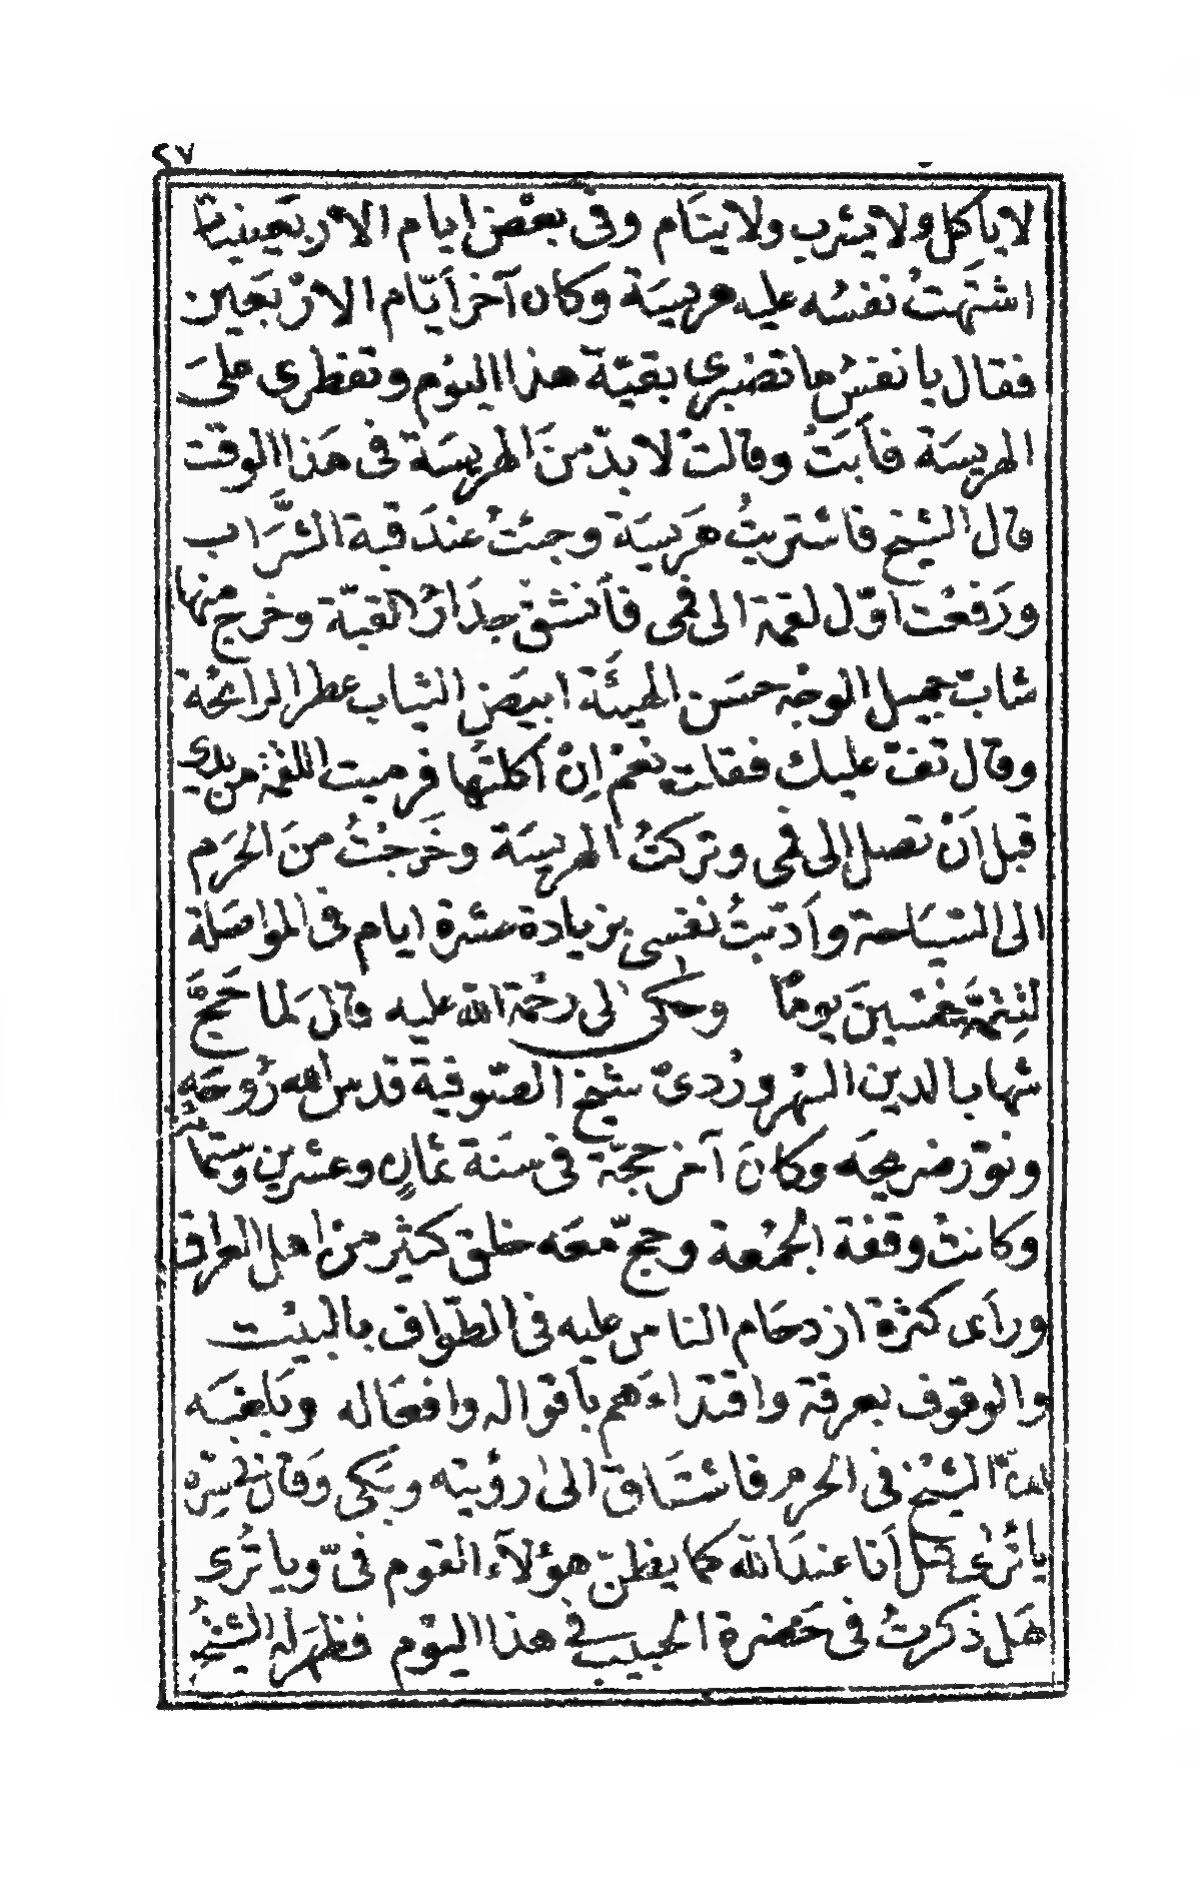 ٢٧
لا ياكل ولا يشرب ولا ينام وفى بعض ايام الاربعينيات
اشتهت نفسُه عليه هريسة وكان آخر أيّام الارْبَعين
فقال يا نفسُ ما تصْبرى بقيّة هذا اليوْم وتفطرى على
الهريسة فأبتْ وقالتْ لا بدّ منَ الهريسَة فى هَذا الوقت
قال الشيخ فاشتريتُ هَريسَة وجئتُ عندَ قبة الشَّرَاب
ورَفعْت اوّل لقمة الى فمى فأنشق جدَارُ القبّة وخرج منها
شابّ جميل الوجْه حسَن الهيئَة ابيَض الثياب عطر الرائحَة
وقال تفّ عليك فقلت نعَمْ اِنْ أكلتُها فرميت اللقمَة من يدى
قبل اَنْ تصل الى فمى وتركتُ الهريسَة وخَرجْتُ منَ الحرَم
الى السّيَاحة وأدّبتُ نفسى بزيادة عشرة ايام فى المواصَلة
لتتمّة خمْسين يومًا وحكى لى رحْمة الله عليه قال لما حَجّ
شهاب الدين السّهْروَرْدىّ شيْخ الصّوفية قدس الله رُوحَه
ونوّر ضريحَه وكانَ آخر حجّة فى سنَة ثمانٍ وعشرين وستمائة
وكانتْ وقفة الجُمْعة وحجّ معَه خلق كثير من اهل العراق
ورأى كثرة ازدحَام الناس عليه فى الطّواف بالبيْت
والوقوف بعرفة واقتداءَهم بأقواله وافعَاله وبَلغَه
انّ الشيْخ فى الحرم فاشتَاق الى رؤيته وبَكى وَقال فى سرّه
يا تُرى هَل أنا عندَ الله كما يظنّ هؤلآء القوم فىّ ويا تُرى
هَل ذكرتُ فى حَضرة الحبيب فى هذا اليوْم فظهرَ له الشيْخُ